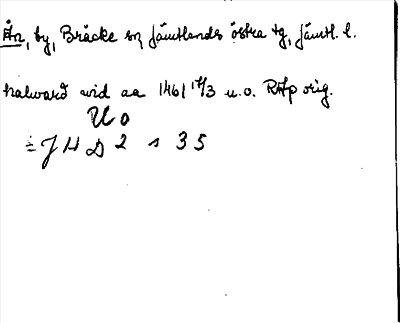 Ån, by, Bräcke sn, Jämtlands östra tg, Jämtl. l.
halward wid aa 1461 17/3 u.o. RAp orig.
U o
= J H D 2 s 35